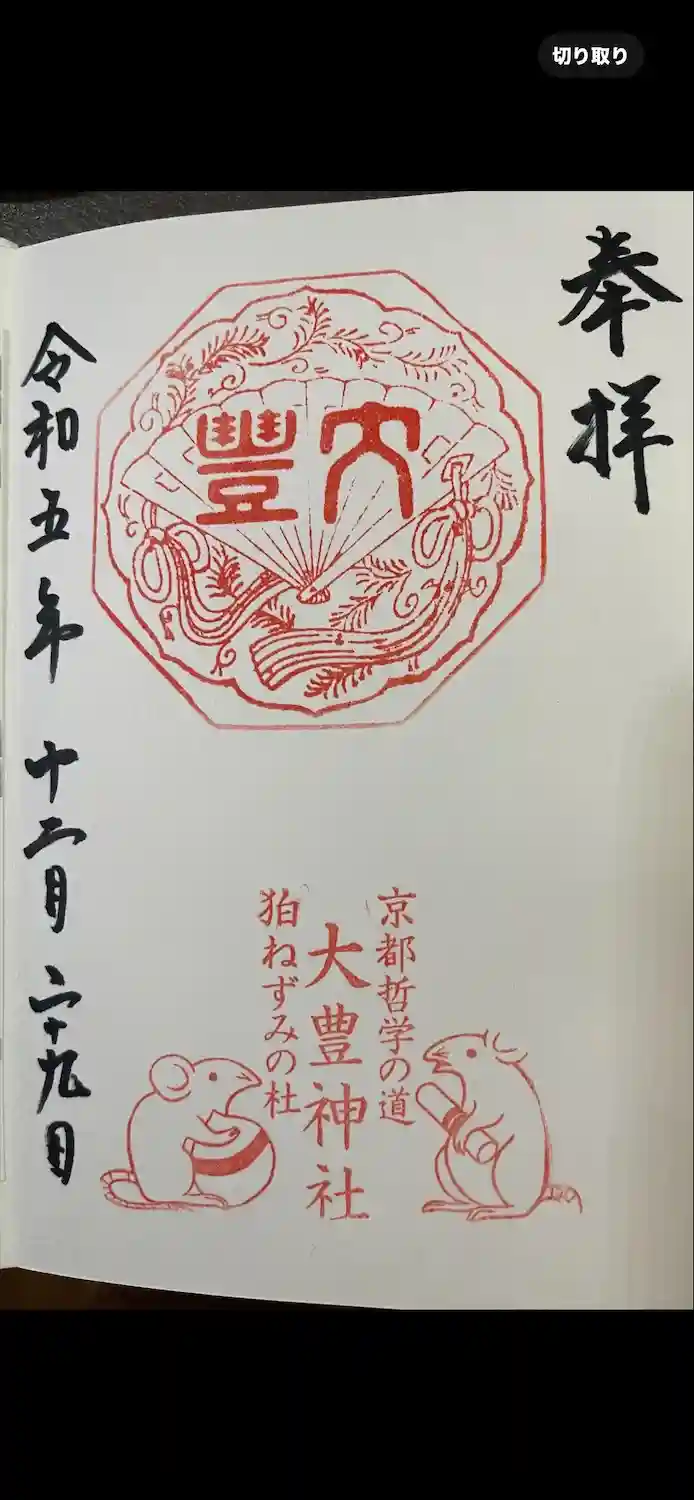 切り取り
奉拝
大豐
京都哲学の道
大豊神社
狛ねずみの杜
令和五年 十二月 二十九日